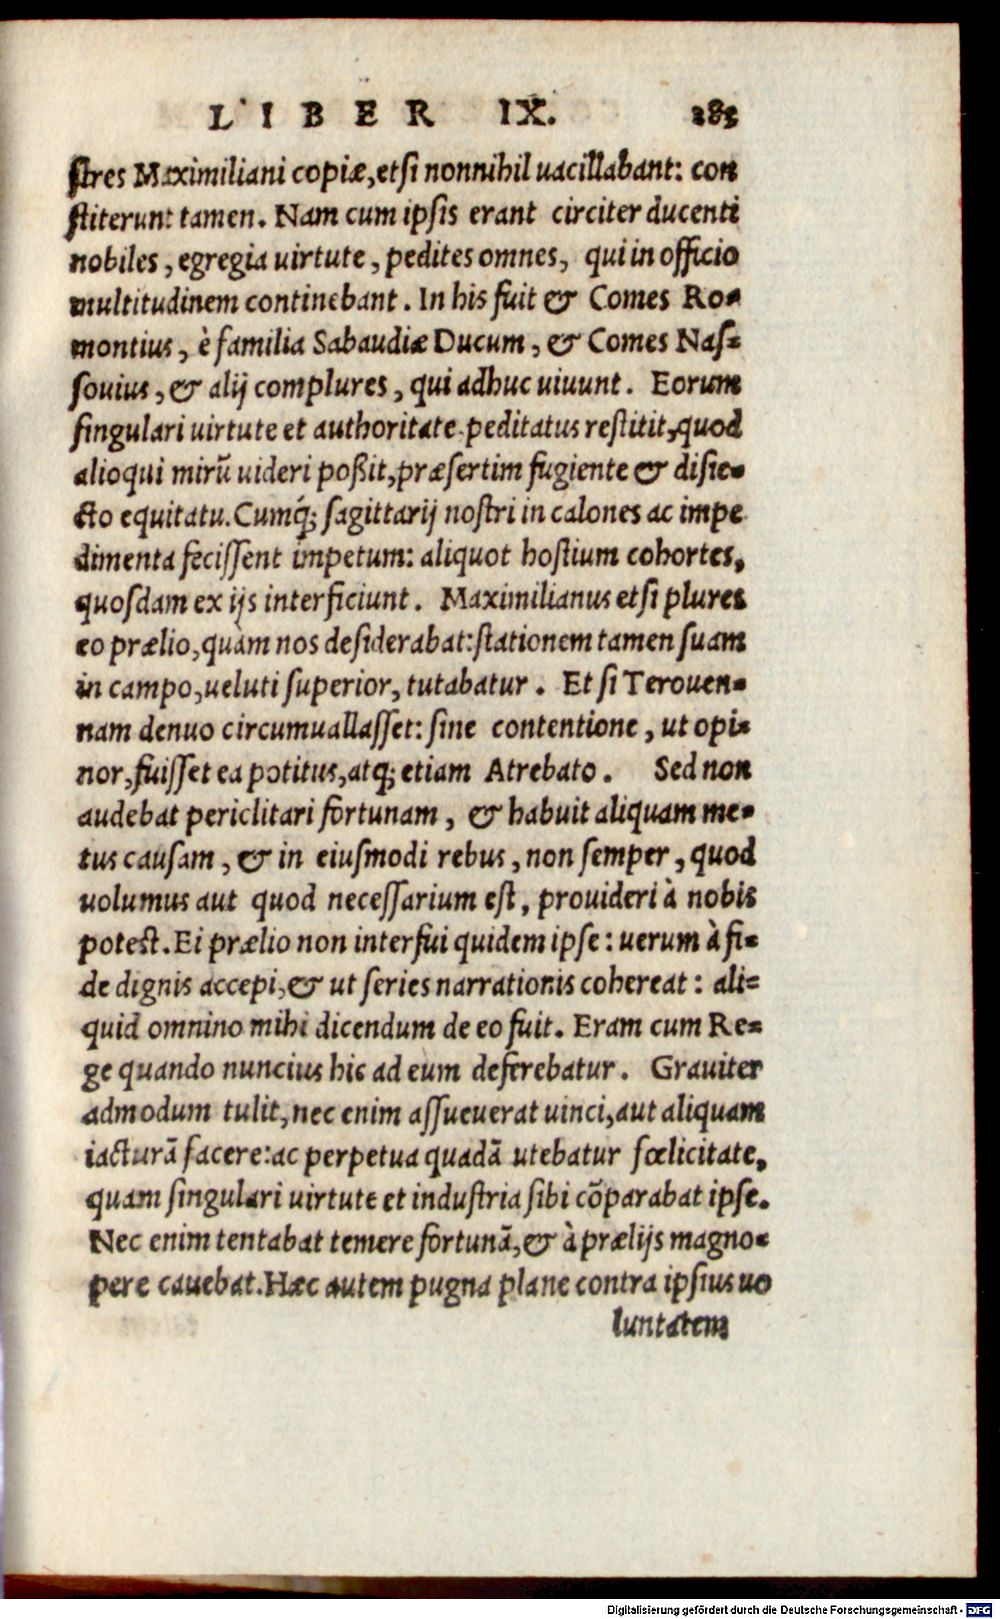 LIBER IX. 285
ſtres Maximiliani copiæ, etſi nonnihil uacillabant: con
ſtiterunt tamen. Nam cum ipſis erant circiter ducenti
nobiles, egregia uirtute, pedites omnes, qui in officio
multitudinem continebant. In his fuit & Comes Ro-
montius, è familia Sabaudiæ Ducum, & Comes Naſ-
ſouius, & alij complures, qui adhuc uiuunt. Eorum
ſingulari uirtute et authoritate peditatus reſtitit, quod
alioqui mirũ uideri poßit, præſertim fugiente & diſie-
cto equitatu. Cumq́; ſagittarij noſtri in calones ac impe
dimenta feciſſent impetum: aliquot hoſtium cohortes,
quoſdam ex ijs interficiunt. Maximilianus etſi plures
eo prælio, quàm nos deſiderabat: ſtationem tamen ſuam
in campo, ueluti ſuperior, tutabatur. Et ſi Terouen-
nam denuo circumuallaſſet: ſine contentione, ut opi-
nor, fuiſſet ea potitus, atq; etiam Atrebato. Sed non
audebat periclitari fortunam, & habuit aliquam me-
tus cauſam, & in eiuſmodi rebus, non ſemper, quod
uolumus aut quod neceſſarium eſt, prouideri à nobis
poteſt. Ei prælio non interfui quidem ipſe: uerum à fi-
de dignis accepi, & ut ſeries narrationis cohereat: ali-
quid omnino mihi dicendum de eo fuit. Eram cum Re-
ge quando nuncius hic ad eum deferebatur. Grauiter
admodum tulit, nec enim aſſueuerat uinci, aut aliquam
iacturã facere: ac perpetua quadã utebatur fœlicitate,
quam ſingulari uirtute et induſtria ſibi cõparabat ipſe.
Nec enim tentabat temere fortunã, & à prælijs magno-
pere cauebat. Hæc autem pugna plane contra ipſius uo
luntatem
Digitalisierung gefördert durch die Deutsche Forschungsgemeinschaft - DFG